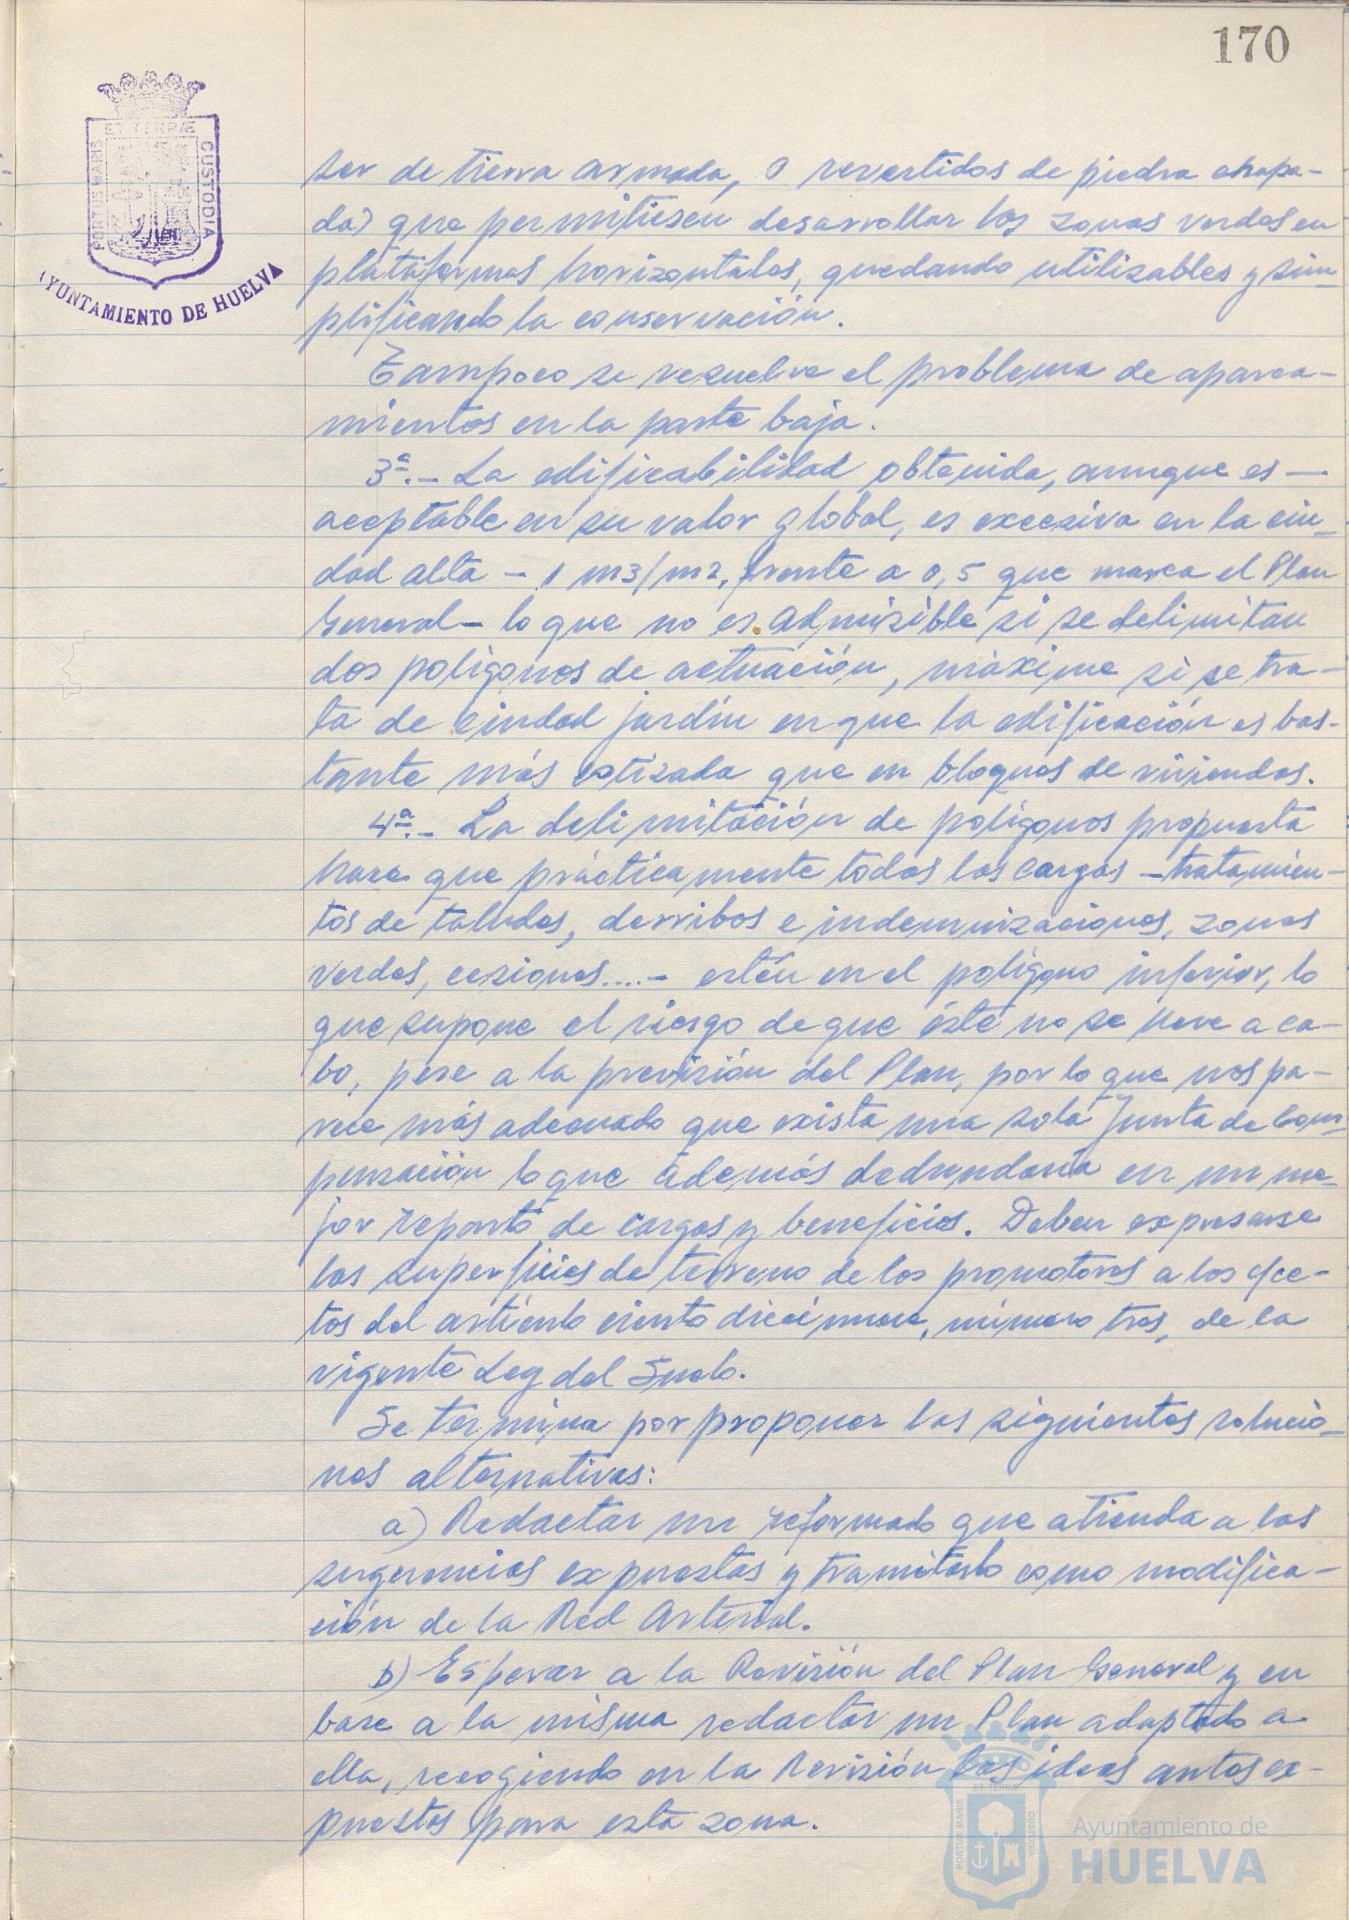 170
ET TERRÆ
PORTUS MARIS
CUSTODIA
AYUNTAMIENTO DE HUELVA
ser de tierra armada, o revestidos de piedra chapa-
da) que permitiesen desarrollar las zonas verdes en
plataformas horizontales, quedando utilizables y sim-
plificando la conservación.
Tampoco se resuelve el problema de aparca-
mientos en la parte baja.
3ª.- La edificabilidad obtenida, aunque es -
aceptable en su valor global, es excesiva en la ciu-
dad alta - 1 m3/m2, frente a 0,5 que marca el Plan
General - lo que no es admisible si se delimitan
dos polígonos de actuación, máxime si se tra-
ta de ciudad jardín en que la edificación es bas-
tante más cotizada que en bloques de viviendas.
4ª.- La delimitación de polígonos propuesta
hace que prácticamente todas las cargas - tratamien-
tos de taludes, derribos e indemnizaciones, zonas
verdes, cesiones....- estén en el polígono inferior, lo
que supone el riesgo de que éste no se lleve a ca-
bo, pese a la previsión del Plan, por lo que nos pa-
rece más adecuado que exista una sola Junta de Com-
pensación lo que además dedundaría en un me-
jor reparto de cargas y beneficios. Deben expresarse
las superficies de terreno de los promotores a los efec-
tos del artículo ciento diecinueve, número tres, de la
vigente Ley del Suelo.
Se termina por proponer las siguientes solucio-
nes alternativas:
a) Redactar un reformado que atienda a las
sugerencias expuestas y tramitarlo como modifica-
ción de la Red Arterial.
b) Esperar a la Revisión del Plan General y en
base a la misma redactar un Plan adaptado a
ella, recogiendo en la Revisión las ideas antes ex-
puestas para esta zona.
ET TERRA
PORTUS MARIS
CUSTODIA
Ayuntamiento de
HUELVA